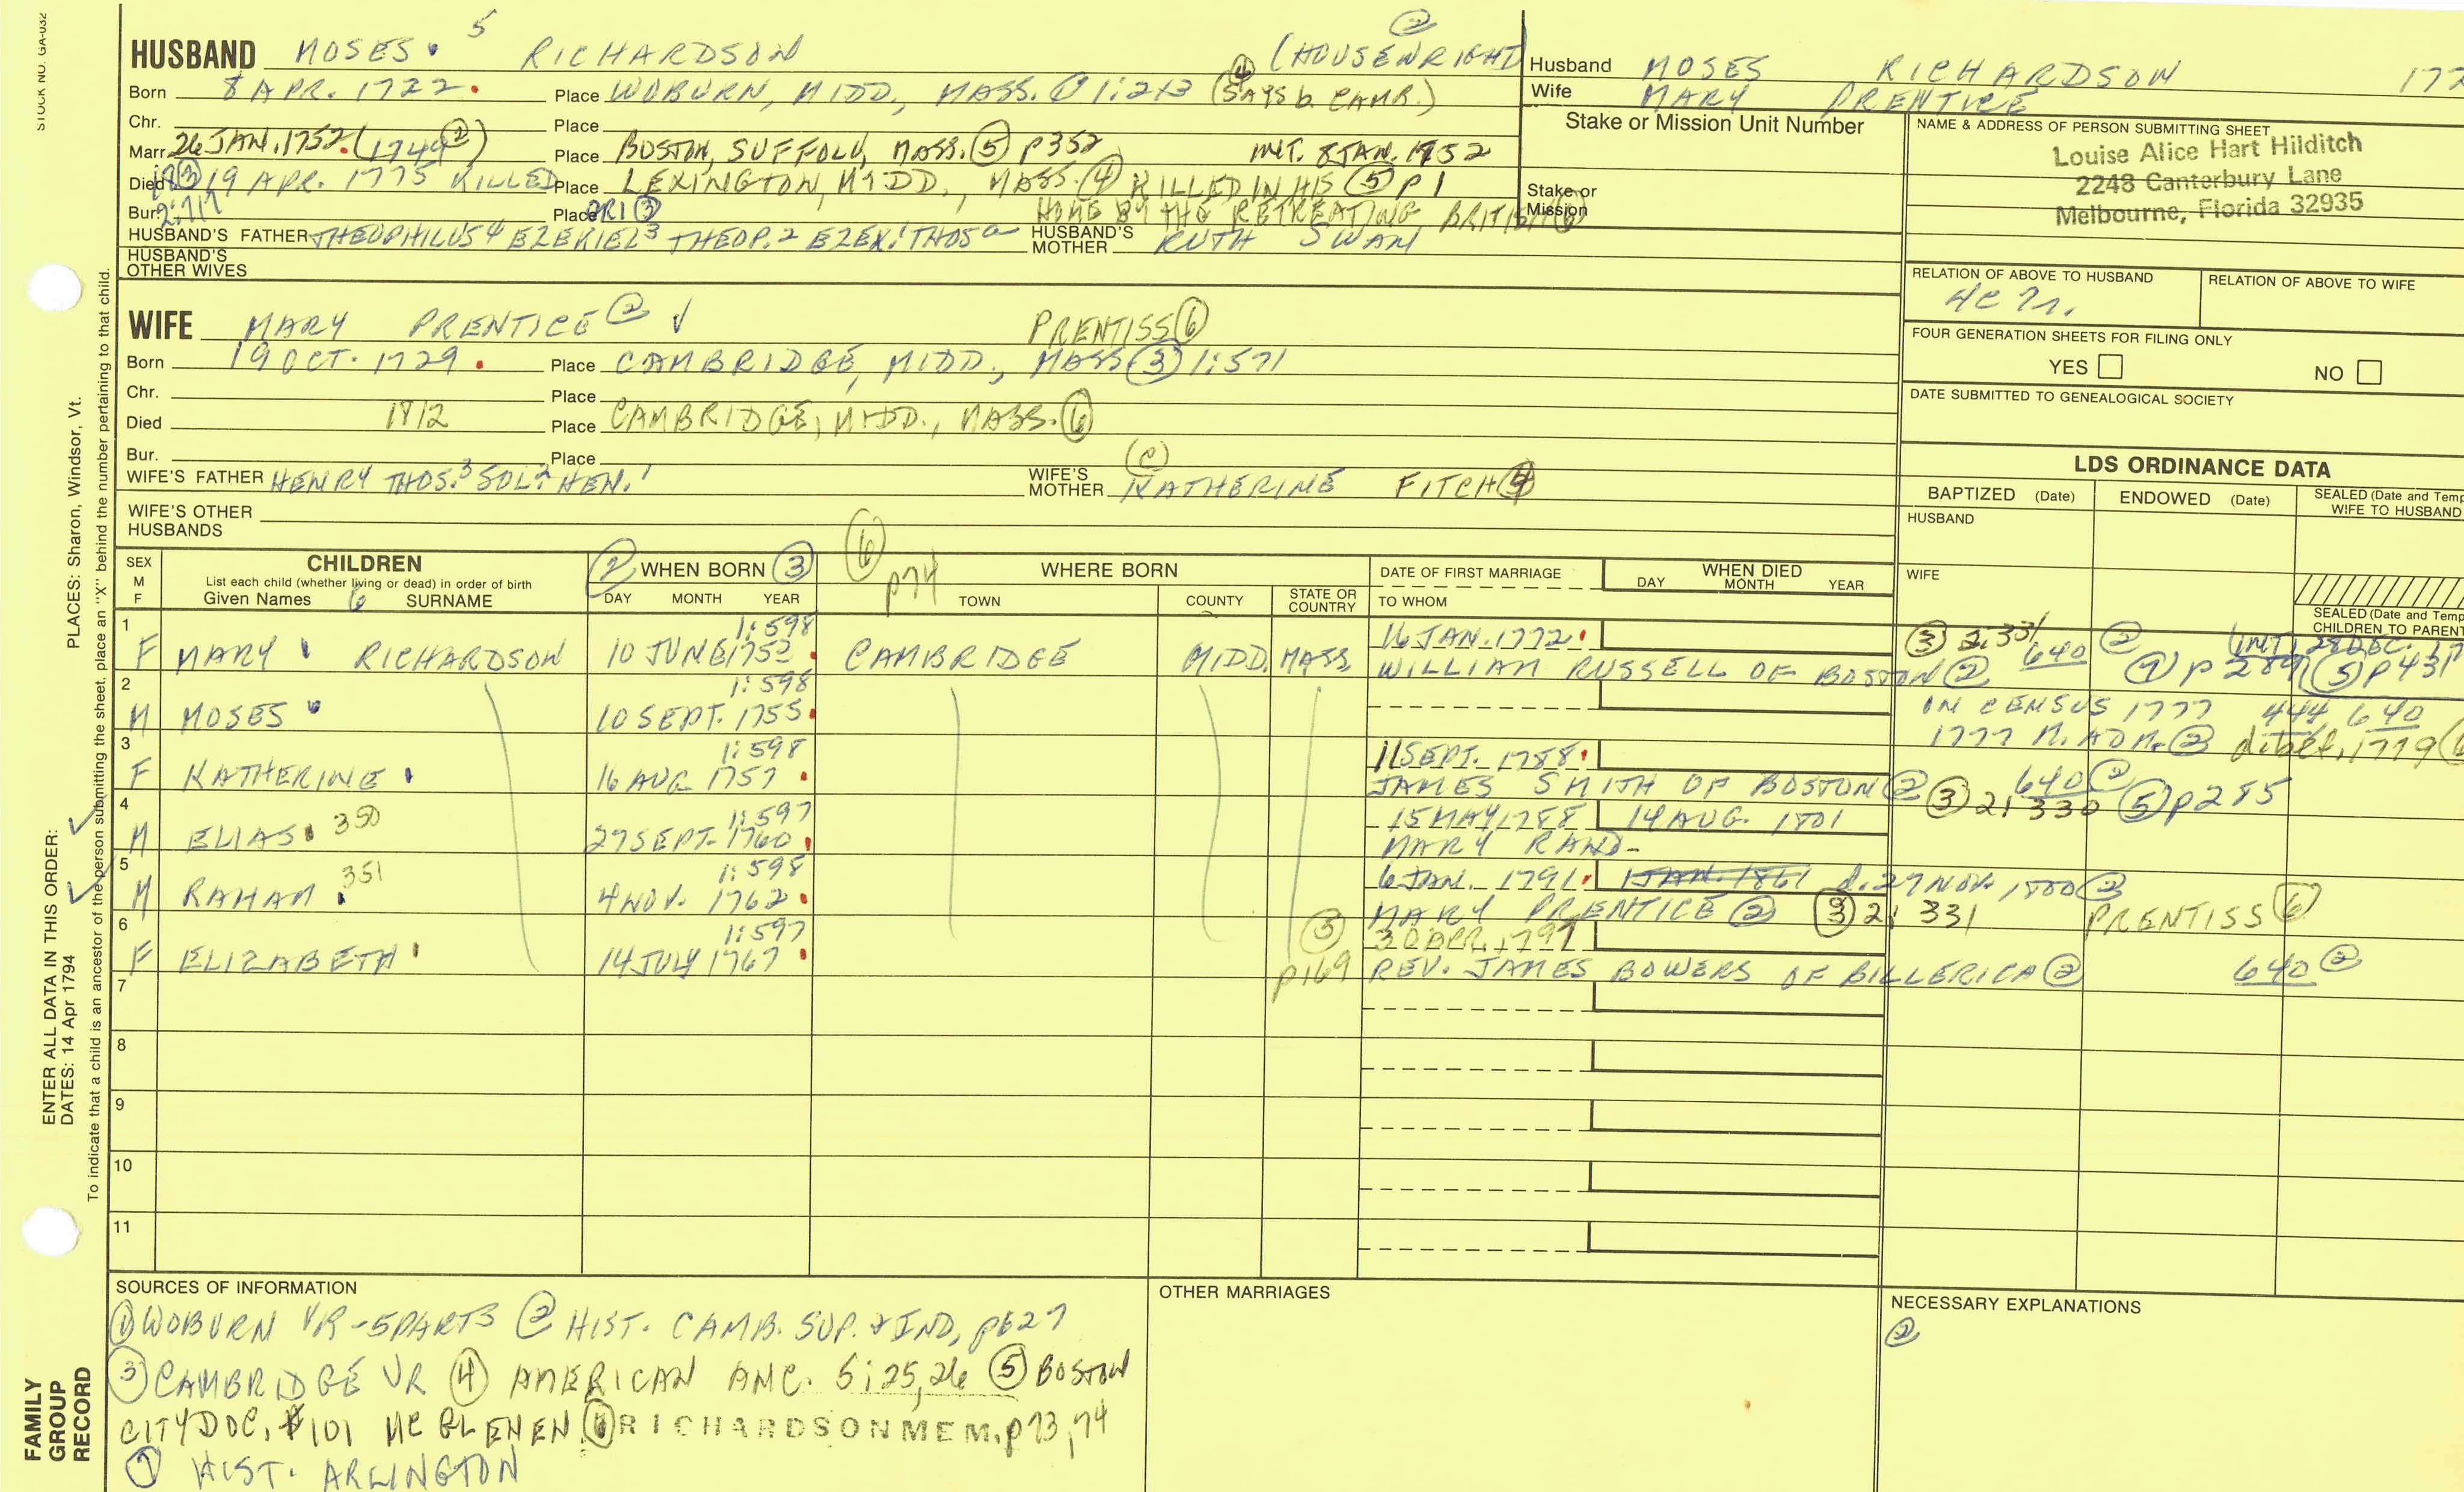 STOCK NO. GA-032
HUSBAND MOSES 5 RICHARDSON ② (HOUSEWRIGHT
Born 8 APR. 1722. Place WOBURN, MIDD., MASS. ① 1:213 ④ (SAYS b. CAMB.)
Chr. Place
Marr. 26 JAN. 1752. (1749②) Place BOSTON, SUFFOLK, MASS. ⑤ p352 INT. 8 JAN. 1752
Died ③ 19 APR. 1775 KILLED Place LEXINGTON, MIDD., MASS. ④ KILLED IN HIS ⑤ p1
Bur. 2:717 Place ③ HOME BY THE RETREATING BRITISH ⑥
HUSBAND'S FATHER THEOPHILUS 4 EZEKIEL 3 THEOP. 2 EZEK. 1 THOS a HUSBAND'S MOTHER RUTH SWAN
HUSBAND'S OTHER WIVES
Husband MOSES RICHARDSON 172
Wife MARY PRENTICE
Stake or Mission Unit Number
Stake or Mission
NAME & ADDRESS OF PERSON SUBMITTING SHEET
Louise Alice Hart Hilditch
2248 Canterbury Lane
Melbourne, Florida 32935
RELATION OF ABOVE TO HUSBAND RELATION OF ABOVE TO WIFE
FOUR GENERATION SHEETS FOR FILING ONLY
YES NO
DATE SUBMITTED TO GENEALOGICAL SOCIETY
WIFE MARY PRENTICE ② √ PRENTISS ⑥
Born 19 OCT. 1729. Place CAMBRIDGE, MIDD., MASS ③ 1:571
Chr. Place
Died 1812 Place CAMBRIDGE, MIDD., MASS. ⑥
Bur. Place
WIFE'S FATHER HENRY THOS. 3 SOL. 2 HEN. 1 WIFE'S MOTHER (C) KATHERINE FITCH ④
WIFE'S OTHER HUSBANDS
LDS ORDINANCE DATA
BAPTIZED (Date) ENDOWED (Date) SEALED (Date and Temp
WIFE TO HUSBAND
HUSBAND
WIFE
SEALED (Date and Temp
CHILDREN TO PARENT
SEX M F CHILDREN
List each child (whether living or dead) in order of birth
Given Names 6 SURNAME
② WHEN BORN ③
DAY MONTH YEAR
⑥ p74 WHERE BORN
TOWN COUNTY STATE OR COUNTRY
DATE OF FIRST MARRIAGE
TO WHOM
WHEN DIED
DAY MONTH YEAR
1 1:598 16 JAN. 1772. ③ 2:331 640 ② INT. 28 DEC. 17
F MARY RICHARDSON 10 JUNE 1753. CAMBRIDGE MIDD. MASS. WILLIAM RUSSELL OF BOSTON ② ⑦ p 289 ⑤ p431
2 1:598 IN CENSUS 1777 444, 640
M MOSES 10 SEPT. 1755. 1777 ② 1779
3 1:598 11 SEPT. 1788.
F KATHERINE 16 AUG 1757. JAMES SMITH OF BOSTON ② 640 ② ③ 2:330 ⑤ p285
4 1:597 15 MAY 1788 14 AUG. 1801
M ELIAS 350 27 SEPT. 1760. MARY RAND-
5 1:598 6 JAN. 1791. 1 JAN. 1861 d. 27 NOV. 1800 ②
M RAHAM 351 4 NOV. 1762. MARY PRENTICE ② ③ 2: 331 PRENTISS ⑥
6 1:597 ③ 30 APR. 1797
F ELIZABETH 14 JULY 1767. p169 REV. JAMES BOWERS OF BILLERICA ② 640 ②
7
8
9
10
11
SOURCES OF INFORMATION
① WOBURN VR-5PARTS ② HIST. CAMB. SUP. & IND, p627
③ CAMBRIDGE VR ④ AMERICAN ANC. 5:25,26 ⑤ BOSTON
CITY DOC. #101 MC GLENEN ⑥ RICHARDSON MEM. p73,74
⑦ HIST. ARLINGTON
OTHER MARRIAGES
NECESSARY EXPLANATIONS
②
PLACES: Sharon, Windsor, Vt.
ENTER ALL DATA IN THIS ORDER:
DATES: 14 Apr 1794
To indicate that a child is an ancestor of the person submitting the sheet, place an "X" behind the number pertaining to that child.
FAMILY
GROUP
RECORD